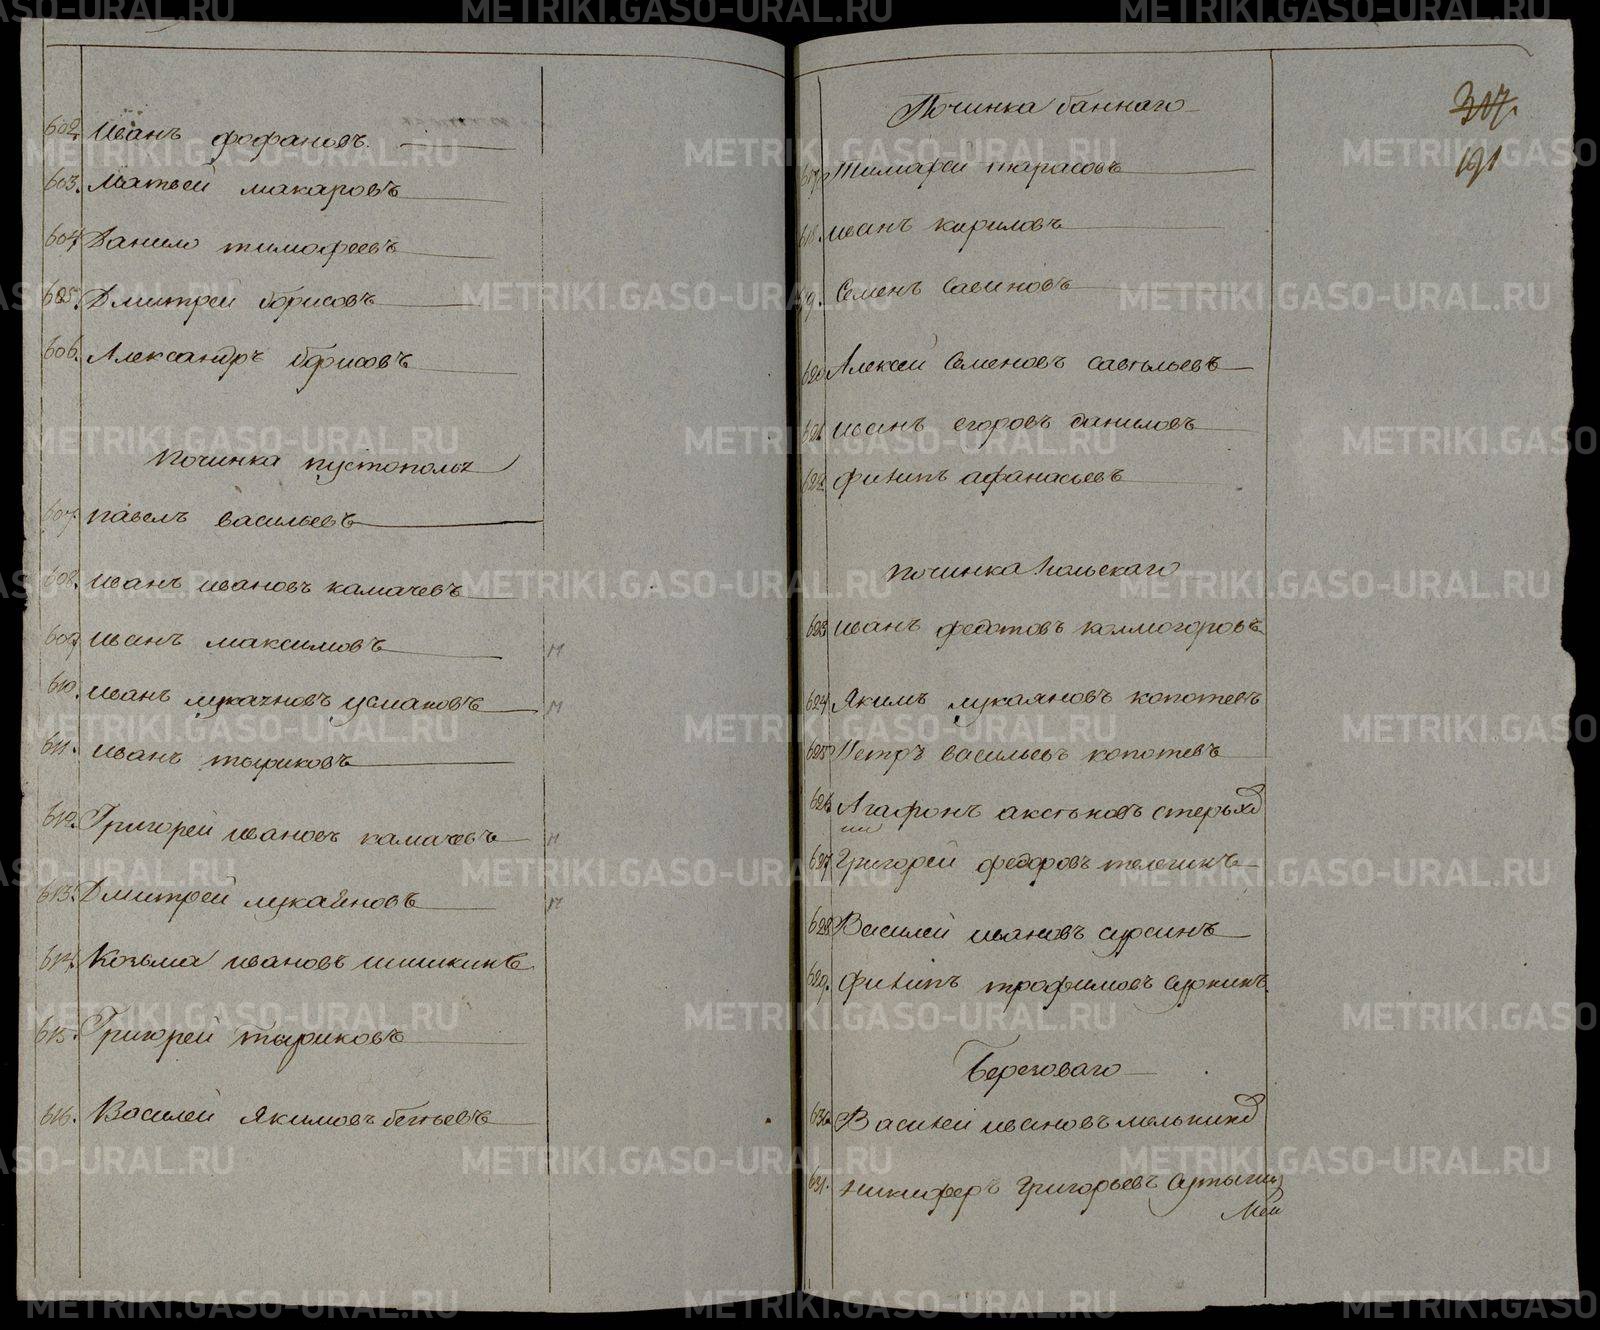 602. Иванъ фофановъ.
603. Матвей макаровъ
604. Данило тимофеевъ
605. Дмитрей борисовъ
606. Александръ борисовъ
починка пустополья
607. павелъ васильевъ
608. иванъ ивановъ камачевъ
609. иванъ максимовъ
610. иванъ усмановъ
611. иванъ
612. Григорей ивановъ камачевъ
613. Дмитрей
614. Козьма ивановъ шишкинъ
615. Григорей
616. Василей Якимовъ
Починка баннаго
307.
191
617. Тимофей тарасовъ
618. иванъ кириловъ
619. Семенъ савиновъ
620. Алексей Семеновъ савельевъ
621. иванъ егоровъ даниловъ
622. филипъ афанасьевъ
починка польскаго
623. иванъ федотовъ колмогоровъ
624. Якимъ лукаяновъ копотевъ
625. Петръ васильевъ копотевъ
626. Агафонъ
627. Григорей федоровъ телегинъ
628. Василей ивановъ сурсинъ
629. филипъ трофимовъ
Береговаго
630. Василей ивановъ
631. никифоръ Григорьевъ
METRIKI.GASO-URAL.RU